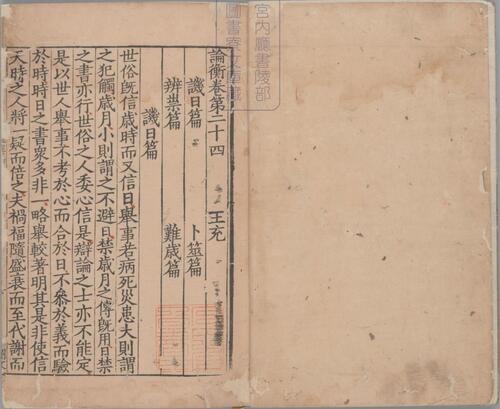 論衡卷第二十四 王充
譏日篇 卜筮篇
辨祟篇 難歲篇
譏日篇
世俗旣信歲時而又信日舉事若病死災患大則謂
之犯觸歲月小則謂之不避日禁歲月之傳旣用日禁
之書亦行世俗之人委心信是辯論之士亦不能定
是以世人舉事不考於心而合於日不參於義而驗
於時時日之書衆多非一略舉較著明其是非使信
天時之人將一疑而倍之夫禍福隨盛衰而至代謝而
宮內廳書陵部